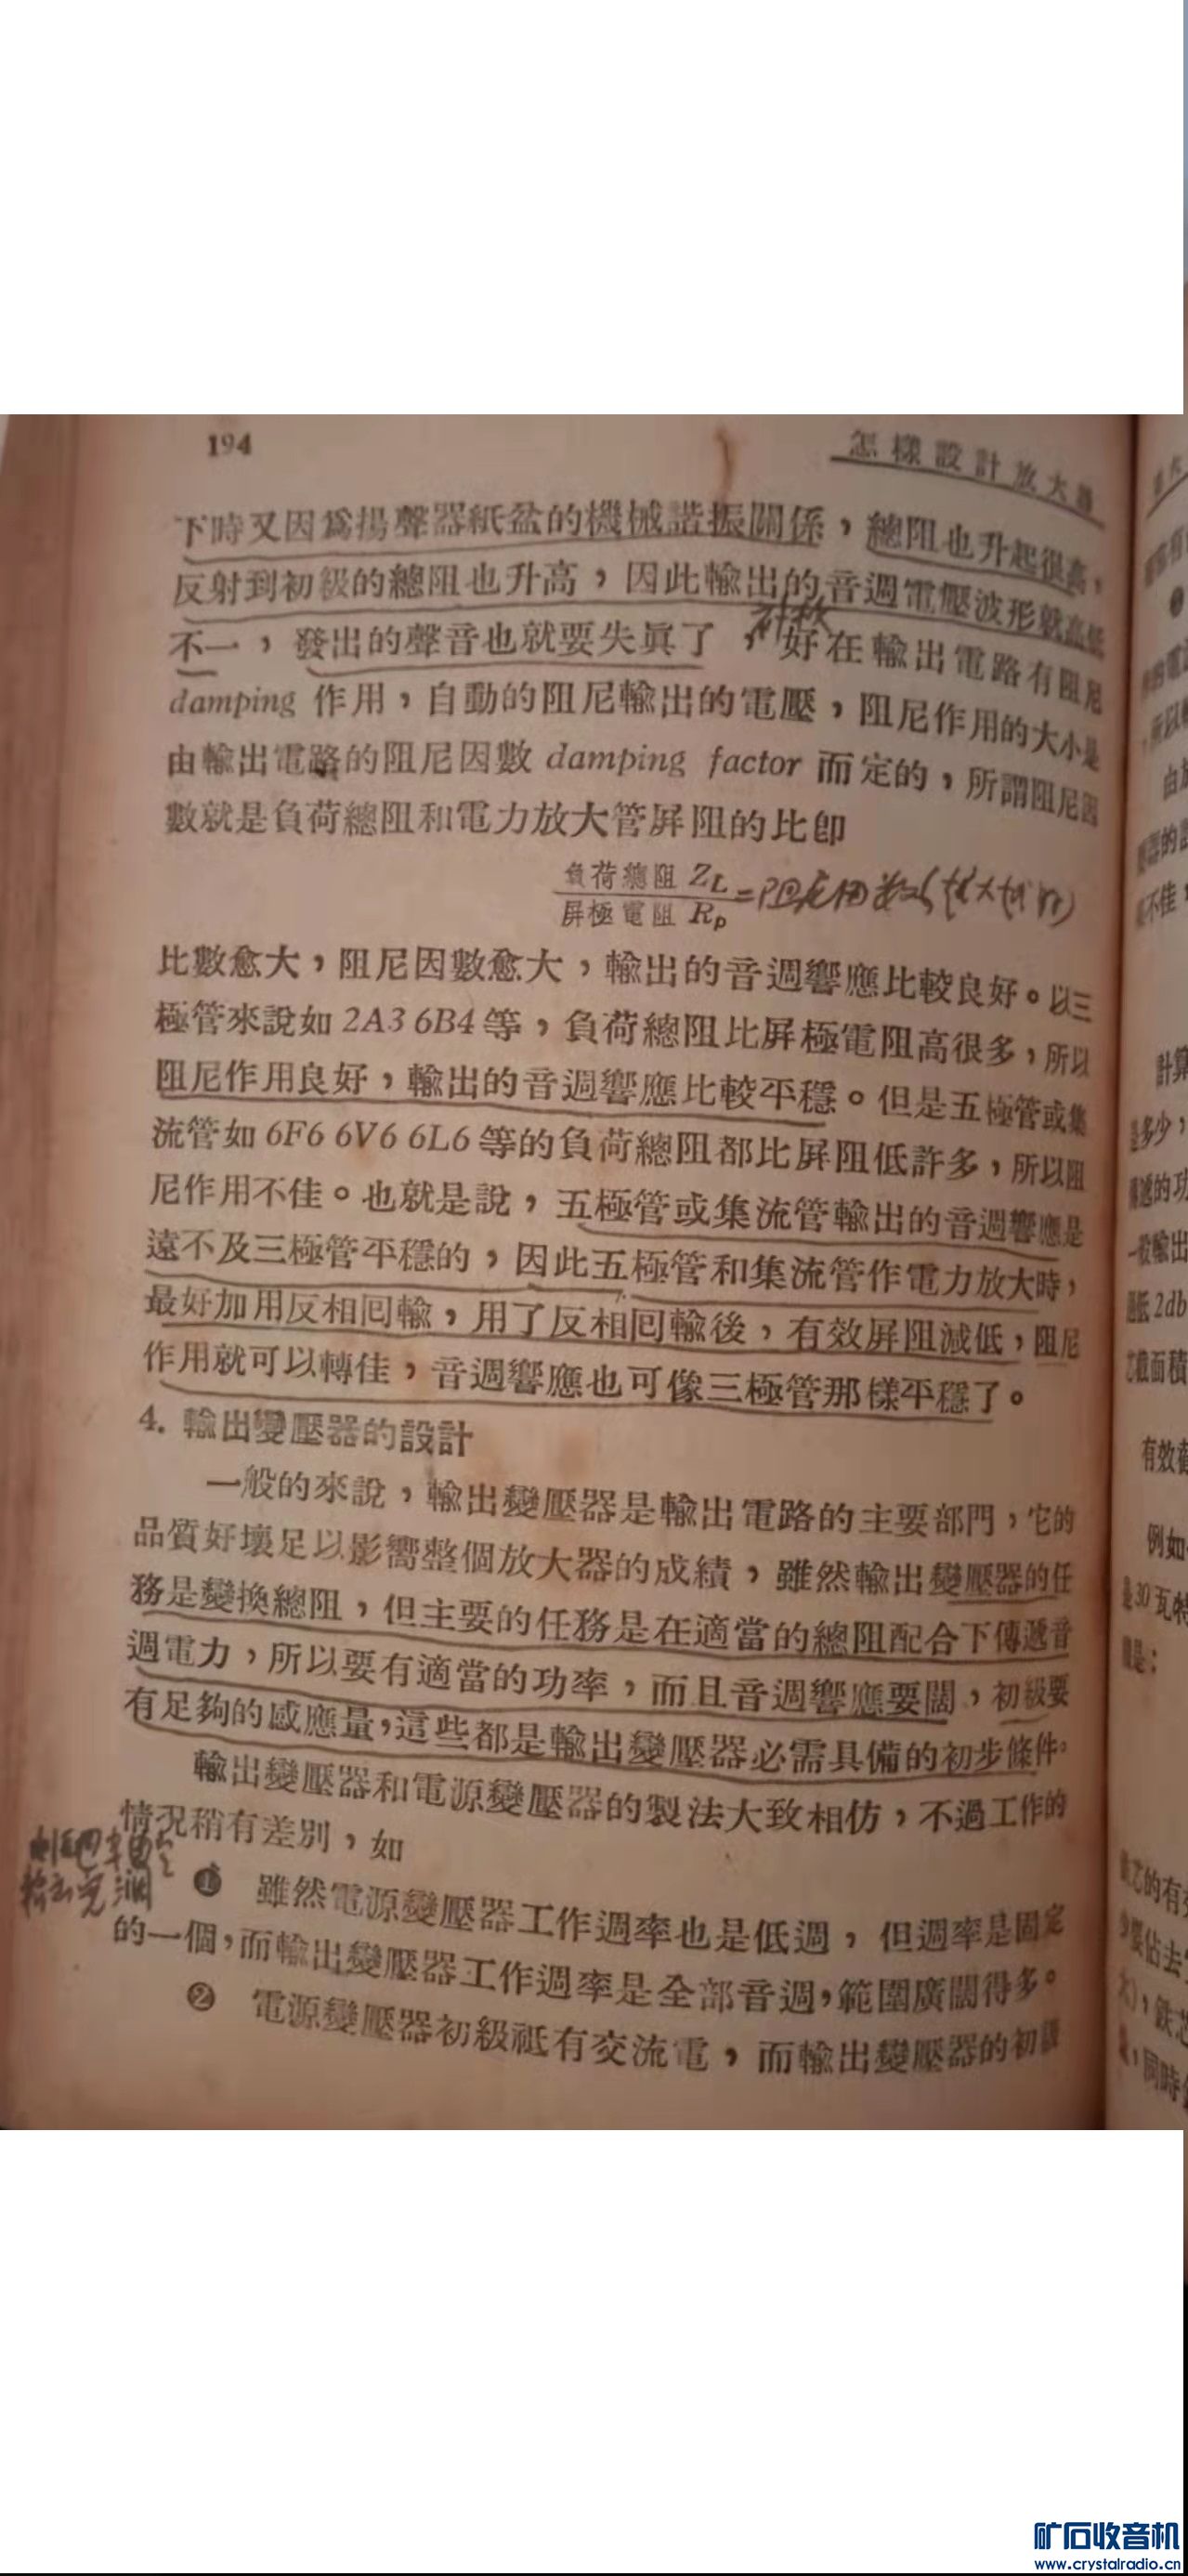 194
怎樣設計放大器
下時又因爲揚聲器紙盆的機械諧振關係，總阻也升起很高，
反射到初級的總阻也升高，因此輸出的音週電壓波形就高低
不一，發出的聲音也就要失眞了，好在輸出電路有阻尼
damping 作用，自動的阻尼輸出的電壓，阻尼作用的大小是
由輸出電路的阻尼因數 damping factor 而定的，所謂阻尼因
數就是負荷總阻和電力放大管屏阻的比卽
負荷總阻 ZL
屏極電阻 Rp
=阻尼因数
比數愈大，阻尼因數愈大，輸出的音週響應比較良好。以三
極管來說如 2A3 6B4 等，負荷總阻比屏極電阻高很多，所以
阻尼作用良好，輸出的音週響應比較平穩。但是五極管或集
流管如 6F6 6V6 6L6 等的負荷總阻都比屏阻低許多，所以阻
尼作用不佳。也就是說，五極管或集流管輸出的音週響應是
遠不及三極管平穩的，因此五極管和集流管作電力放大時，
最好加用反相囘輸，用了反相囘輸後，有效屏阻減低，阻尼
作用就可以轉佳，音週響應也可像三極管那樣平穩了。
4. 輸出變壓器的設計
一般的來說，輸出變壓器是輸出電路的主要部門，它的
品質好壞足以影嚮整個放大器的成績，雖然輸出變壓器的任
務是變換總阻，但主要的任務是在適當的總阻配合下傳遞音
週電力，所以要有適當的功率，而且音週響應要闊，初級要
有足夠的感應量，這些都是輸出變壓器必需具備的初步條件。
輸出變壓器和電源變壓器的製法大致相仿，不過工作的
情況稍有差別，如
❶ 雖然電源變壓器工作週率也是低週，但週率是固定
的一個，而輸出變壓器工作週率是全部音週，範圍廣闊得多。
❷ 電源變壓器初級祗有交流電，而輸出變壓器的初級
矿石收音机
www.crystalradio.cn